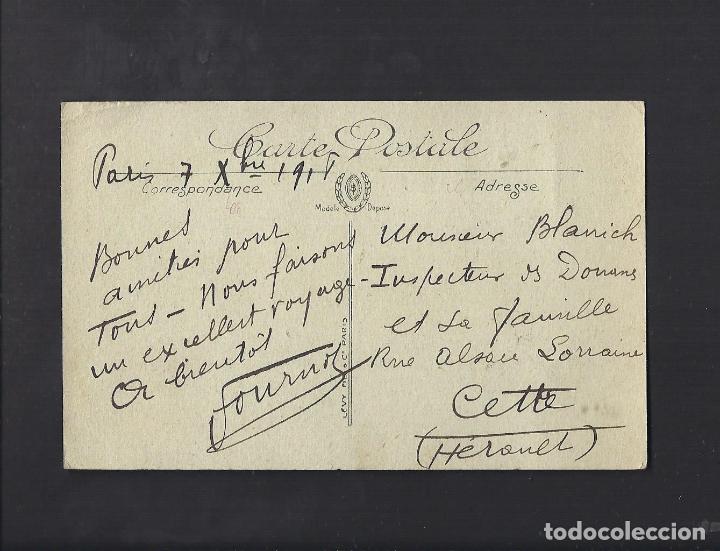 Carte Postale
Paris 7 Xbre 191
Correspondance
Adresse
Modèle Déposé
Bonnes
amitiés pour
Tous - Nous faisons
un excellent voyage -
A bientôt
Monsieur Blanich
Inspecteur des Douanes
et sa famille
Rue Alsace Lorraine
Cette
(Hérault)
LÉVY FILS & Cie PARIS
todocoleccion.net